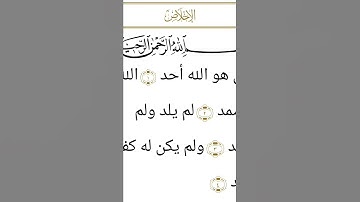 الإخلاص
ـم الله الرحمن الرحيـ
هو الله أحد ١ الله
ـصمد ٢ لم يلد ولم
ـد ٣ ولم يكن له كفـ
ـد ٤